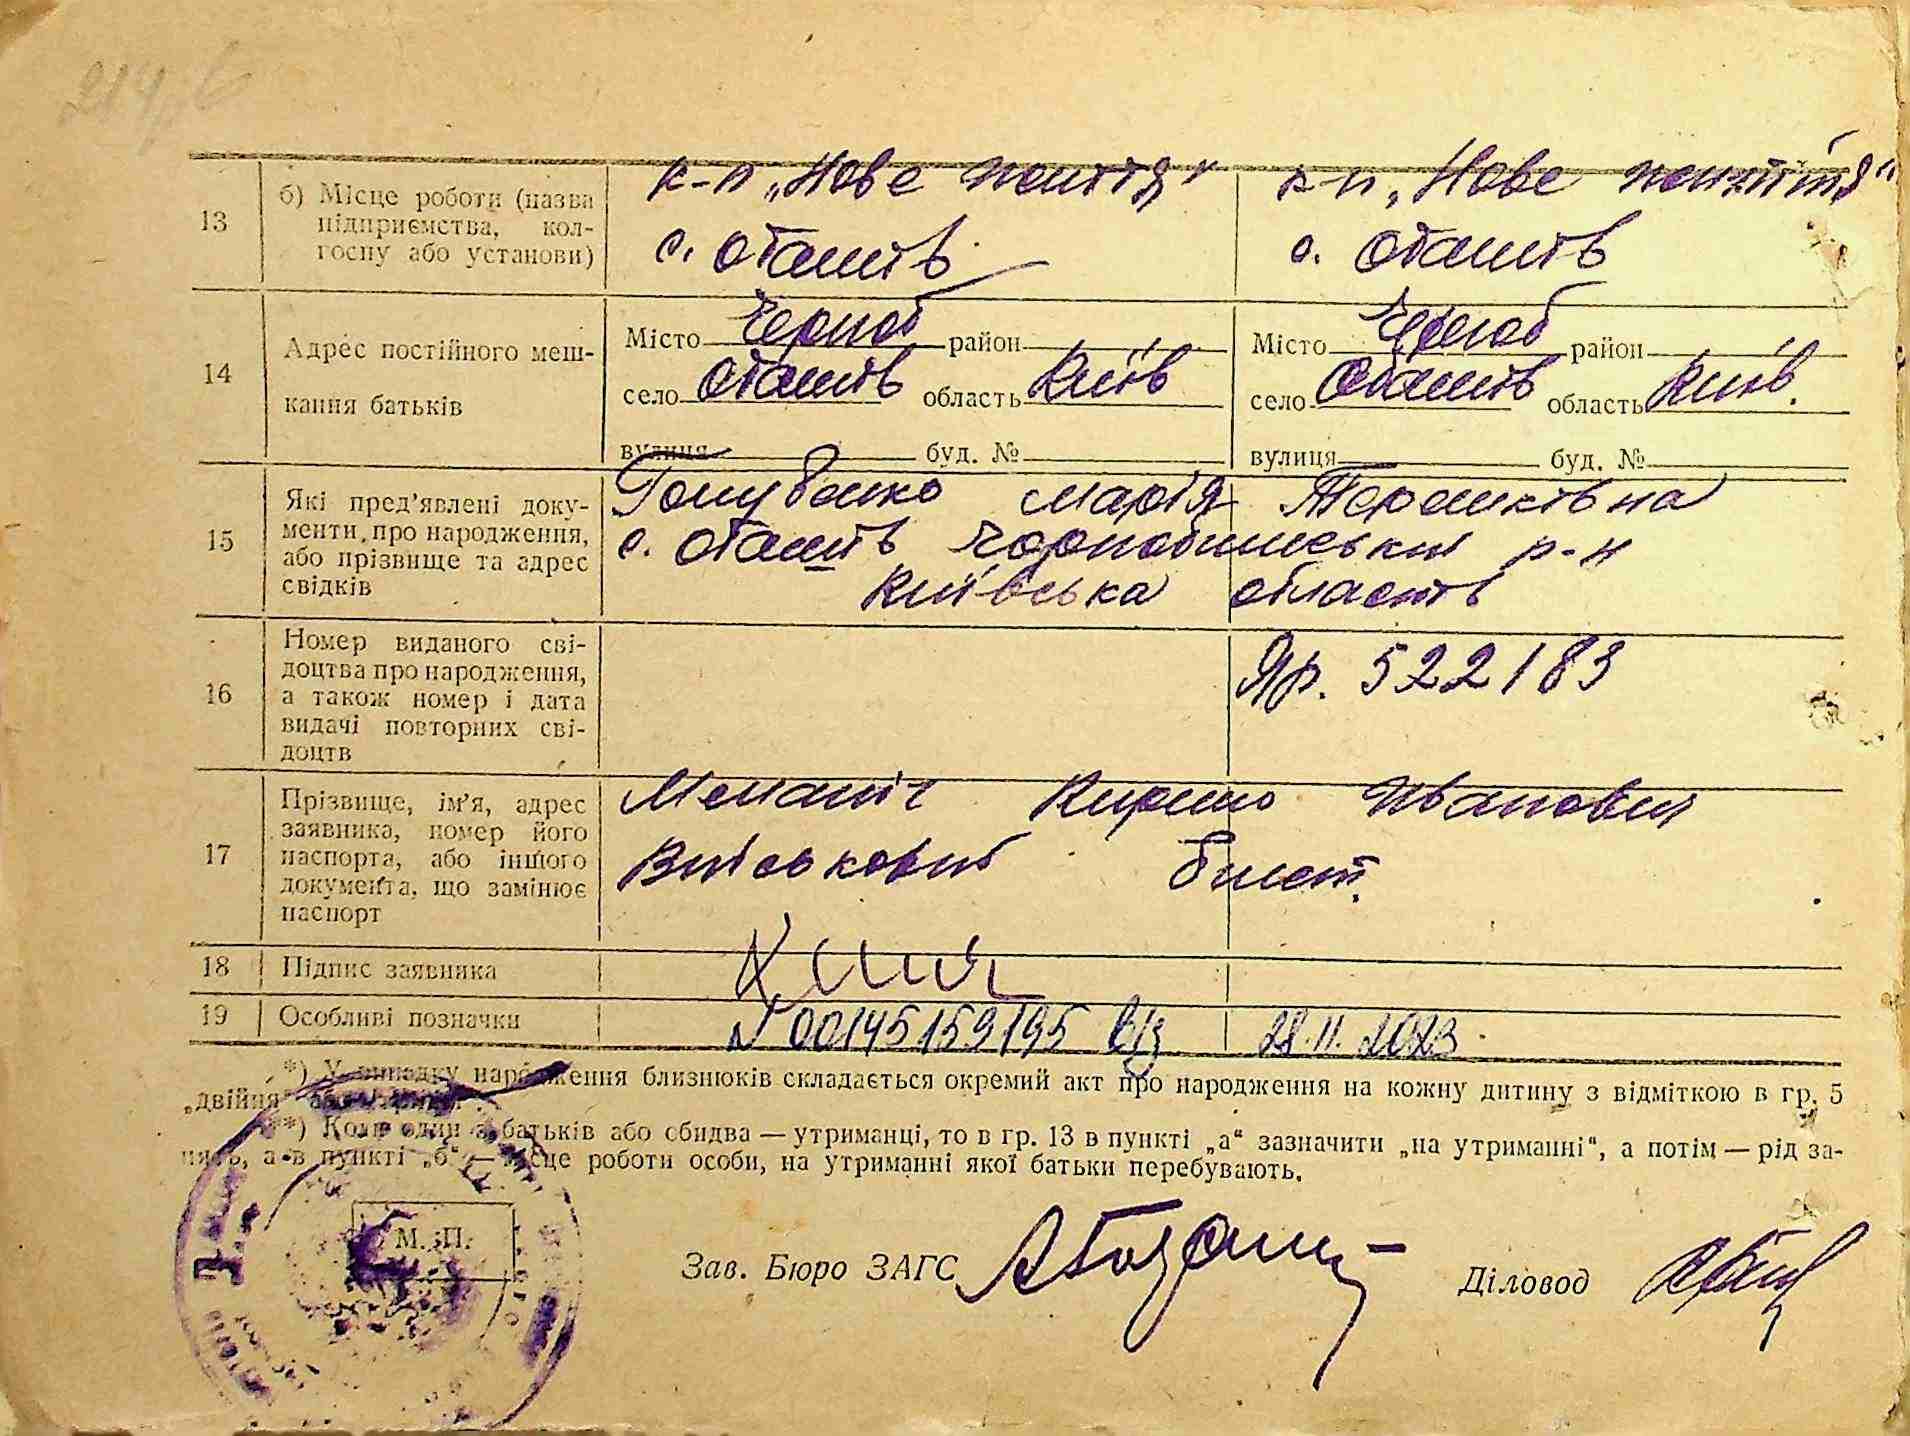 214
13
б) Місце роботи (назва
підприємства, кол-
госпу або установи)
к-п „Нове життя"
с. Оташів
к-п „Нове життя"
с. Оташів
14
Адрес постійного меш-
кання батьків
Місто Чорноб район
село Оташів область Київ
вулиця буд. №
Місто Чорноб район
село Оташів область Київ.
вулиця буд. №
15
Які пред'явлені доку-
менти про народження,
або прізвище та адрес
свідків
Голубенко Марія Терешківна
с. Оташів Чорнобильський р-н
Київська область
16
Номер виданого сві-
доцтва про народження,
а також номер і дата
видачі повторних сві-
доцтв
Яр. 522183
17
Прізвище, ім'я, адрес
заявника, номер його
паспорта, або іншого
документа, що замінює
паспорт
Кирило Иванович
Військовий билет.
18
Підпис заявника
19
Особливі позначки
№ 00145159195 від 28.11.2023.
*) У випадку народження близнюків складається окремий акт про народження на кожну дитину з відміткою в гр. 5
„двійня" або
**) Коли один з батьків або обидва — утриманці, то в гр. 13 в пункті „а" зазначити „на утриманні", а потім — рід за-
нять, а в пункті „б" — місце роботи особи, на утриманні якої батьки перебувають.
М. П.
Зав. Бюро ЗАГС
Діловод